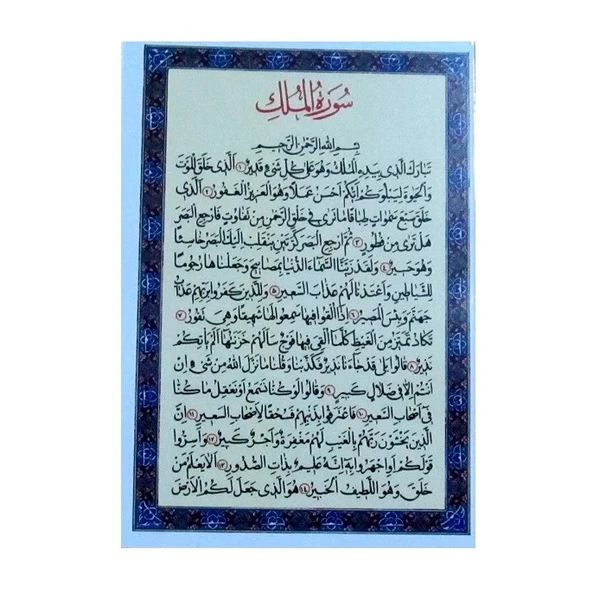 سورة الملك
بسم الله الرحمن الرحيم
تبارك الذي بيده الملك وهو على كل شيء قدير ١ الذي خلق الموت
والحيوة ليبلوكم أيكم أحسن عملا وهو العزيز الغفور ٢ الذي
خلق سبع سموات طباقا ما ترى في خلق الرحمن من تفاوت فارجع البصر
هل ترى من فطور ٣ ثم ارجع البصر كرتين ينقلب إليك البصر خاسئا
وهو حسير ٤ ولقد زينا السماء الدنيا بمصابيح وجعلناها رجوما
للشياطين وأعتدنا لهم عذاب السعير ٥ وللذين كفروا بربهم عذاب
جهنم وبئس المصير ٦ إذا ألقوا فيها سمعوا لها شهيقا وهي تفور ٧
تكاد تميز من الغيظ كلما ألقي فيها فوج سألهم خزنتها ألم يأتكم
نذير ٨ قالوا بلى قد جاءنا نذير فكذبنا وقلنا ما نزل الله من شيء إن
أنتم إلا في ضلال كبير ٩ وقالوا لو كنا نسمع أو نعقل ما كنا
في أصحاب السعير ١٠ فاعترفوا بذنبهم فسحقا لأصحاب السعير ١١ إن
الذين يخشون ربهم بالغيب لهم مغفرة وأجر كبير ١٢ وأسروا
قولكم أو اجهروا به إنه عليم بذات الصدور ١٣ ألا يعلم من
خلق وهو اللطيف الخبير ١٤ هو الذي جعل لكم الأرض